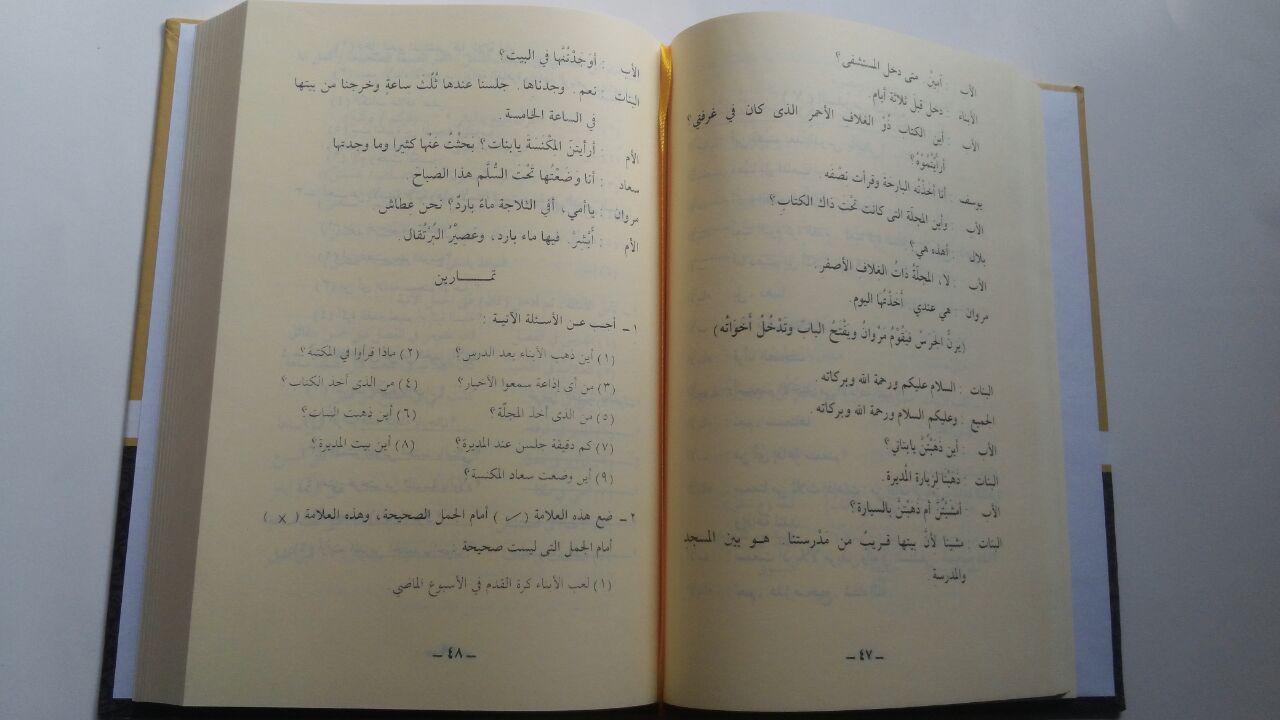 الأب : أمس. متى دخل المستشفى؟
الأبناء : دخل قبل ثلاثة أيام.
الأب : أين الكتاب ذُوْ الغلاف الأحمر الذى كان في غرفتي؟
أرأَيْتُمُوْهُ؟
يوسف : أنا أخذْتُه البارحَة وقرأت نصْفَه .
الأب : وأين المجلّة التى كانت تَحْتَ ذاك الكتابِ؟
بلال : أهذه هي؟
الأب : لا، المجلّةُ ذاتُ الغلاف الأصفر.
مروان : هي عندي أَخَذْتُها اليوم.
(يرنُّ الجَرَسُ فيَقُوْمُ مَرْوانُ ويَفْتَحُ البابَ وتَدْخُلُ أخَوَاتُه)
البنات : السلام عليكم ورحمة الله وبركاته .
الجميع : وعليكم السلام ورحمة الله وبركاته.
الأب : أين ذَهَبْتُنَّ يابناتي؟
البنات : ذَهَبْنا لزيارة المُديرة.
الأب : أمشَيْتُنَّ أم ذَهَبْتُنَّ بالسيارة؟
البنات : مشينا لأنَّ بيتها قريبٌ من مَدْرستنا. هو بين المسجد
والمدرسة.
ــ ٤٧ ــ
الأب : أوَجَدْتُنَّها في البيت؟
البنات : نعم. وجدناها. جلسنا عندها ثُلُثَ ساعةٍ وخرجنا من بيتها
في الساعة الخامسة .
الأم : أرأيتنَ المِكْنَسَةَ يابنات؟ بَحَثْتُ عَنْها كثيرا وما وجدتها .
سعاد : أنا وضَعْتُها تَحْتَ السُّلَّم هذا الصَباح.
مروان : ياأمي، أفي الثلاجة ماءٌ باردٌ؟ نحن عطاش
الأم : أَبْشِرْ. فيها ماء بارد، وعَصيْرُ البُرْتُقال.
تمـــارين
١ــ أجب عن الأسئلة الآتية :
(١) أين ذهب الأبناء بعد الدرس؟ (٢) ماذا قرأوا في المكتبة؟
(٣) من أى إذاعة سمعوا الأخبار؟ (٤) من الذى أخذ الكتاب؟
(٥) من الذى أخذ المجلّة؟ (٦) أين ذهبت البنات؟
(٧) كم دقيقة جلسن عند المديرة؟ (٨) أين بيت المديرة؟
(٩) أين وضعت سعاد المكنسة؟
٢ــ ضع هذه العلامة (✓) أمام الجمل الصحيحة، وهذه العلامة (×)
أمام الجمل التى ليست صحيحة
(١) لعب الأبناء كرة القدم في الأسبوع الماضي
ــ ٤٨ ــ